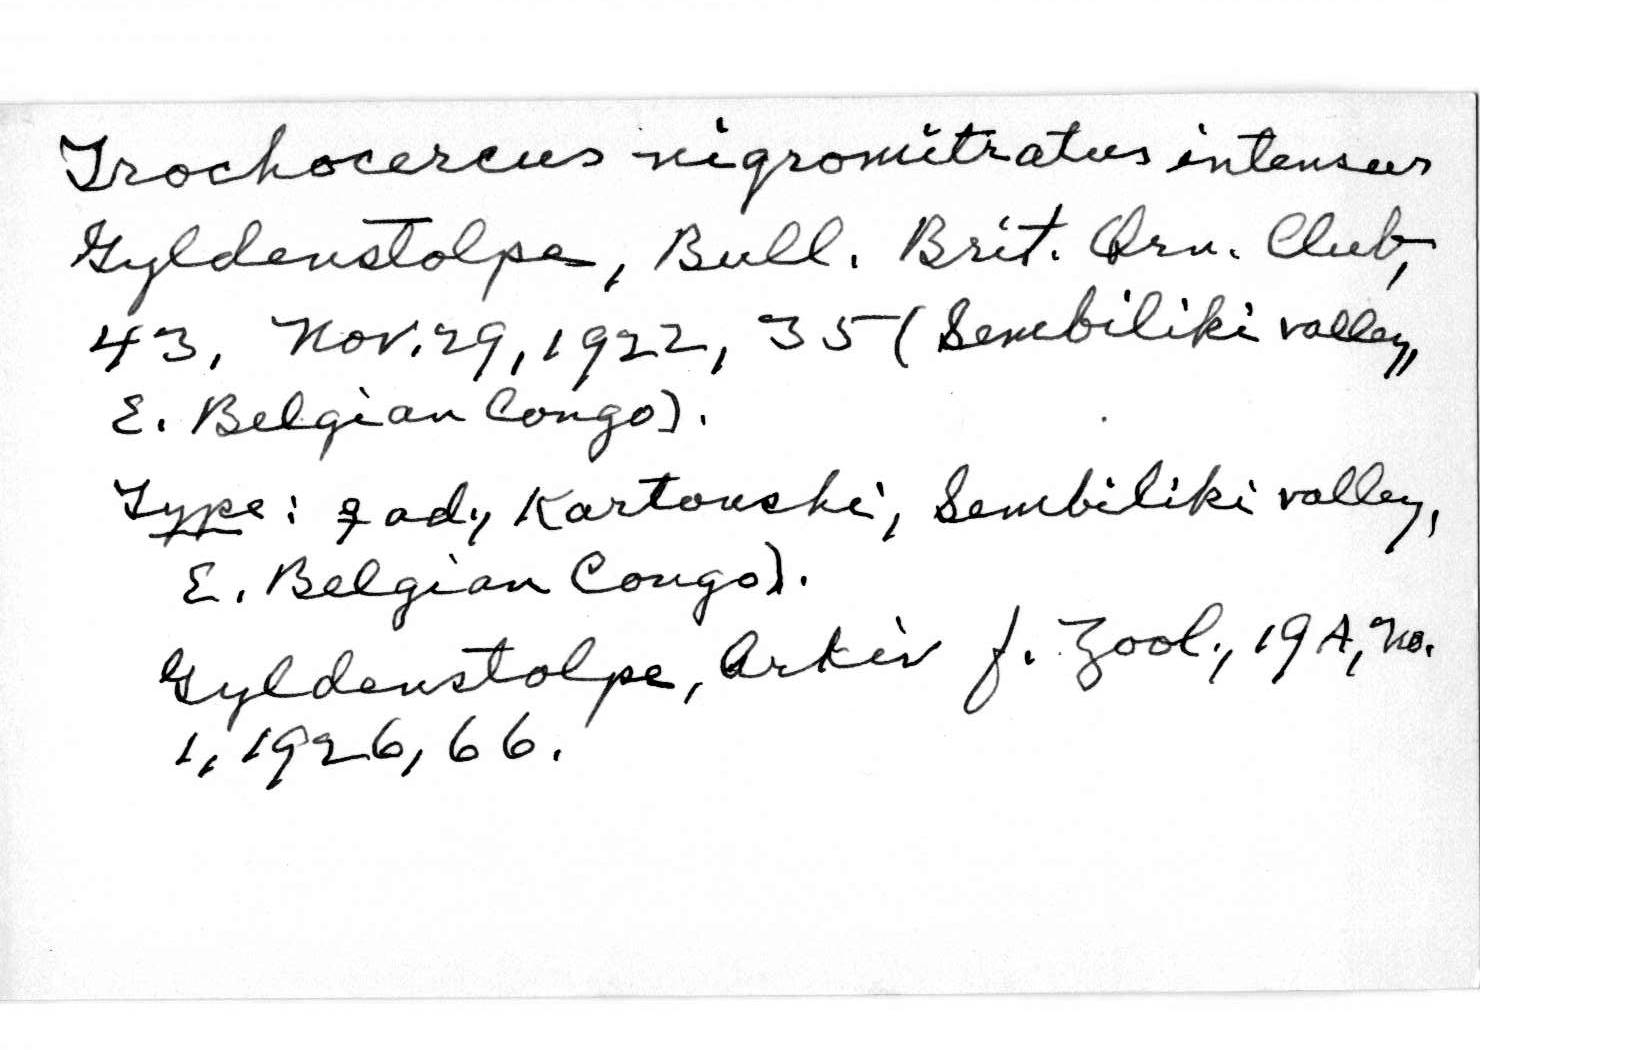 Trochocercus nigromitratus intensus
Gyldenstolpe, Bull. Brit. Orn. Club,
43, Nov. 29, 1922, 35 (Sembiliki valley,
E. Belgian Congo).
Type: ♀ ad., Kartoushi, Sembiliki valley,
E. Belgian Congo).
Gyldenstolpe, Arkiv f. Zool., 19A, No.
1, 1926, 66.